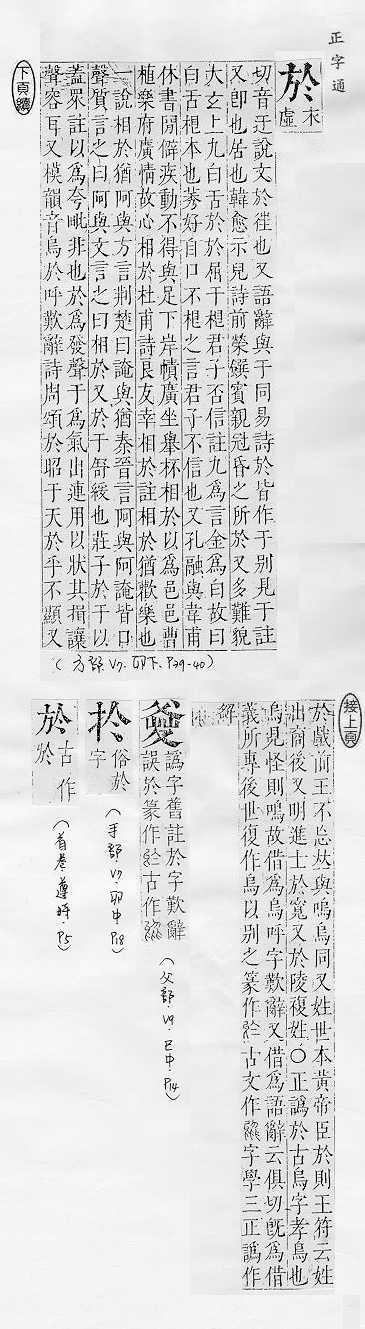 正字通
於 衣虛
切音迂說文於往也又語辭與于同易詩於皆作于別見于註
又卽也居也韓愈示兒詩前榮饌賓親冠昏之所於又多難貌
大玄上九白舌於於屈干棍君子否信註九爲言金爲白故曰
白舌棍本也莠好自口不棍之言君子不信也又孔融與韋甫
休書閒僻疾動不得與足下岸幘廣坐舉杯相於以爲邑邑曹
植樂府廣情故心相於杜甫詩良友幸相於註相於猶歡樂也
一說相於猶阿與方言荆楚曰與猶秦晉言阿與阿皆口
聲質言之曰阿與文言之曰相於又於于舒緩也莊子於于以
蓋衆註以爲夸毗非也於爲發聲于爲氣出連用以狀其揖讓
聲容耳又模韻音烏於呼歎辭詩周頌於昭于天於乎不顯又
(方部.V7.卯下.P39-40)
下頁續
接上頁
於戲前王不忘𠀤與嗚烏同又姓世本黃帝臣於則王符云姓
出商後又明進士於寬又於陵複姓○正譌於古烏字孝鳥也
烏見怪則鳴故借爲烏呼字歎辭又借爲語辭云俱切旣爲借
義所專後世復作烏以別之篆作古文作字學三正譌作
譌字舊註於字歎辭
誤於篆作古作
(父部.V9.巳中.P14)
扵 俗於字
(手部.V7.卯中.P18)
於 古作
(首卷.遵時.P5)